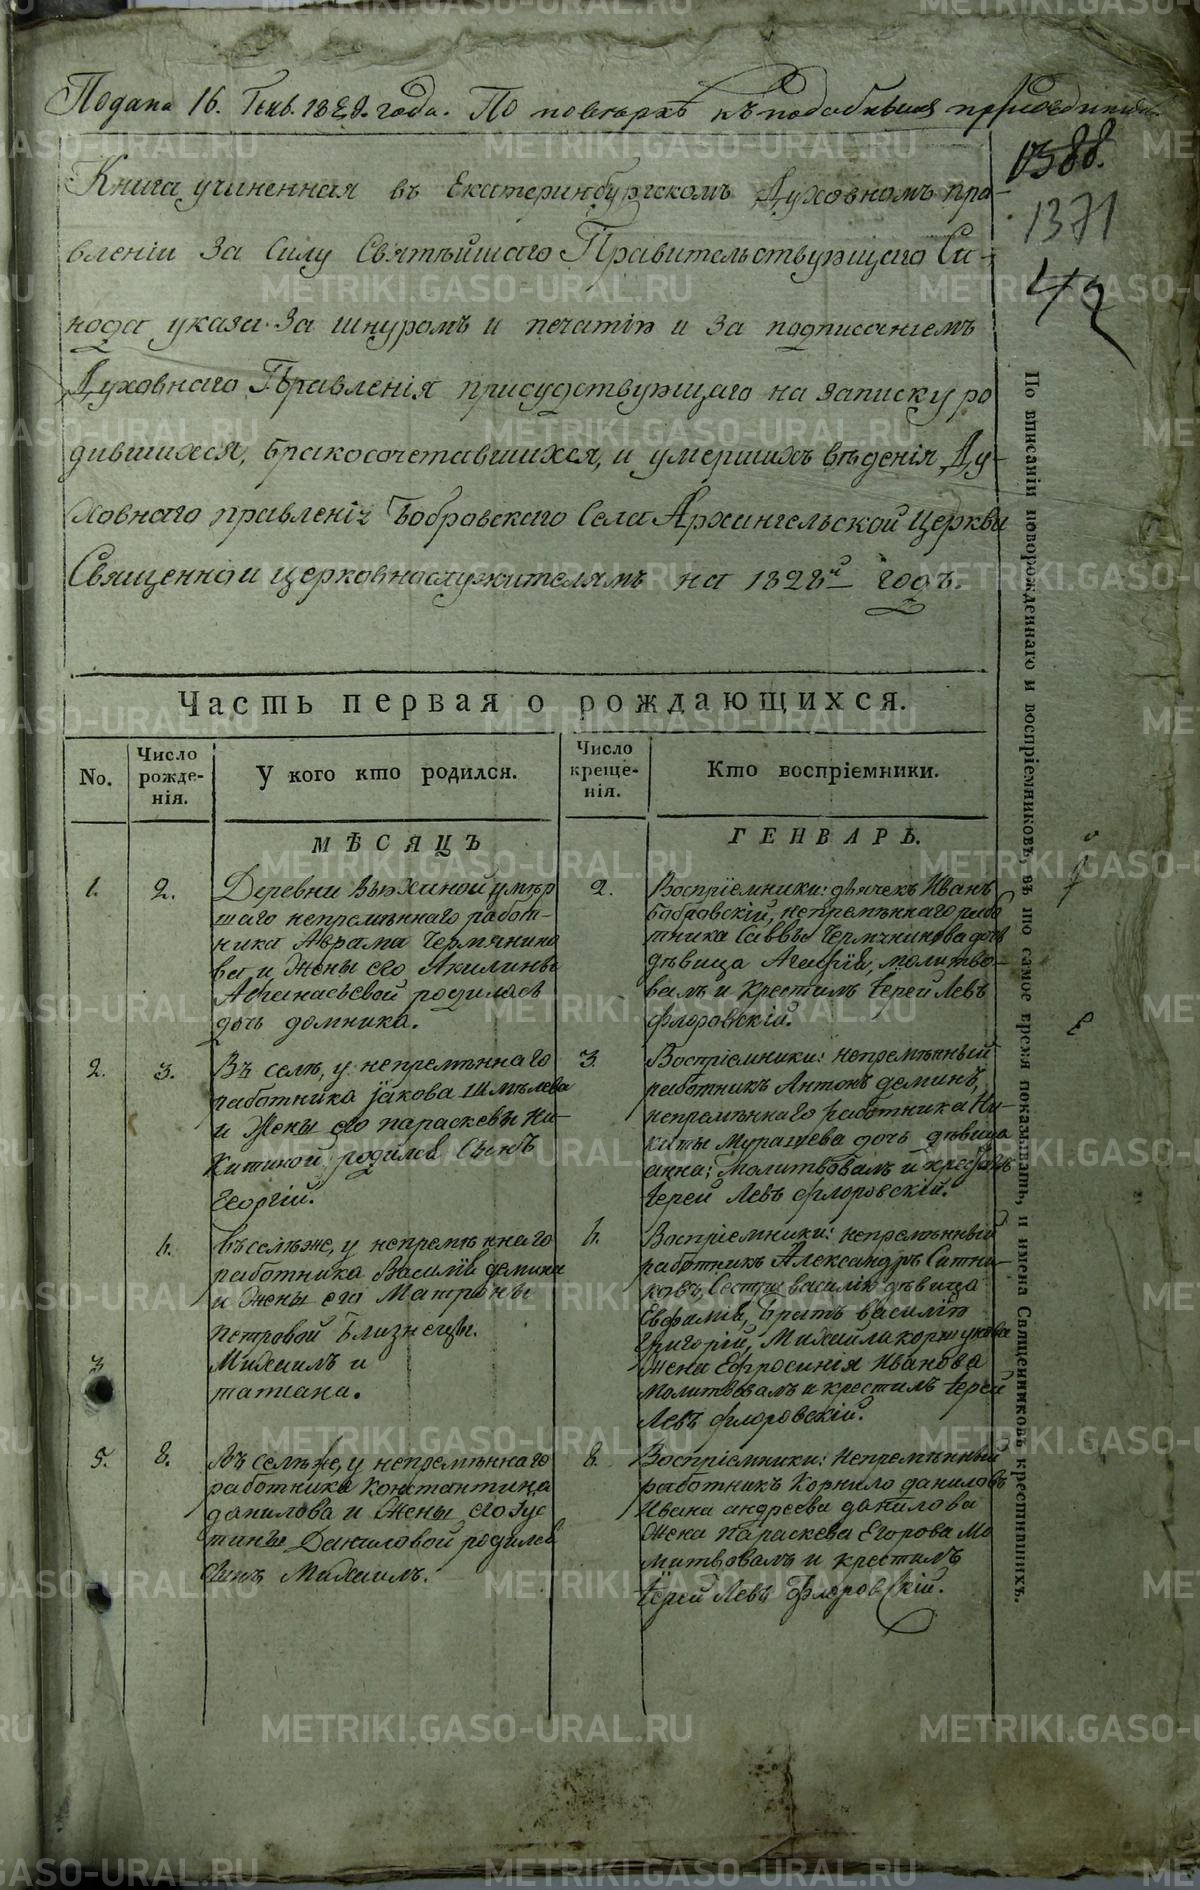 Подана 16. Генв. 1829. года. По повѣркѣ къ подобнымъ
1388.
1371
42
Книга учиненная въ Екатеринбургскомъ Духовномъ пра-
вленіи За Силу Святѣйшаго Правительствующаго Си-
нода указа За шнуромъ и печатію и За подписаніемъ
Духовнаго Правленія присудствующаго на записку ро
дившихся, бракосочетавшихся, и умершихъ вѣденія Ду-
ховнаго правленія Бобровскаго Села Архангельской Церкви
Священно и церковнослужителямъ на 1828й годъ.
Часть первая о рождающихся.
No.
Число рожде-нія.
У кого кто родился.
Число креще-нія.
Кто воспріемники.
МѢСЯЦЪ
ГЕНВАРЬ.
1.
2.
Деревни умѣр
шаго непремѣннаго работ-
ника Аврама Чермянино
ва и Жены его Акилины
Афанасьевой родилась
дочь домника.
2.
Воспріемники: дьячекъ Иванъ
бобровскій, непремѣннаго рабо
тника Саввы Чермянинова дочь
дѣвица Агафія, молитво-
валъ и крестилъ Іерей Левъ
флоровскій.
2.
3.
Въ селѣ, у непремѣннаго
работника Іакова Шмѣлева
и Жены его параскевы Ни-
китиной родился Сынъ
Георгій.
3.
Воспріемники: непремѣнный
работникъ Антонъ деминъ,
непремѣннаго работника Ни-
киты Мурашева дочь дѣвица
анна; Молитвовалъ и крестилъ
Іерей Левъ флоровскій.
3
6.
въ селѣже, у непремѣннаго
работника Василія демина
и Жены его Матроны
петровой Близнецы.
Михаилъ и
татіана.
6.
Воспріемники: непремѣнный
работникъ Александръ Ситни-
ковъ, Сестра василію дѣвица
Евфимія, братъ василію
григорій, Михаила коршунова
Жена Ефросинія Иванова
Молитвовалъ и крестилъ Іерей
Левъ флоровскій.
5.
8.
Въ селѣже, у непремѣннаго
работника Константина
данилова и Жены его Іус
тины Даниловой родился
Сынъ Михаилъ.
8.
Воспріемники: Непремѣнный
работникъ Корнило даниловъ
Ивана андреева данилова
Жена параскева Егорова Мо
литвовалъ и крестилъ
Іерей Левъ Флоровскій.
По вписаніи новорожденнаго и воспріемниковъ въ то самое время показывать, и имена Священниковъ крестившихъ.
METRIKI.GASO-URAL.RU